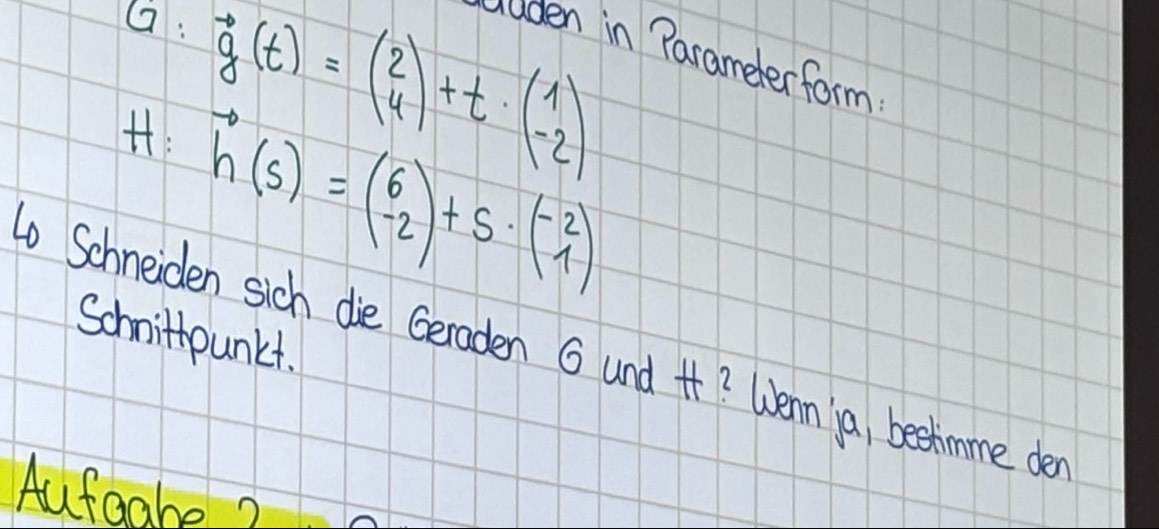 in Parameterform:
G: g⃗(t) = (2 4) + t · (1 -2)
H: h⃗(s) = (6 -2) + s · (-2 1)
↳ Schneiden sich die Geraden G und H? Wenn ja, bestimme den
Schnittpunkt.
Aufgabe 2